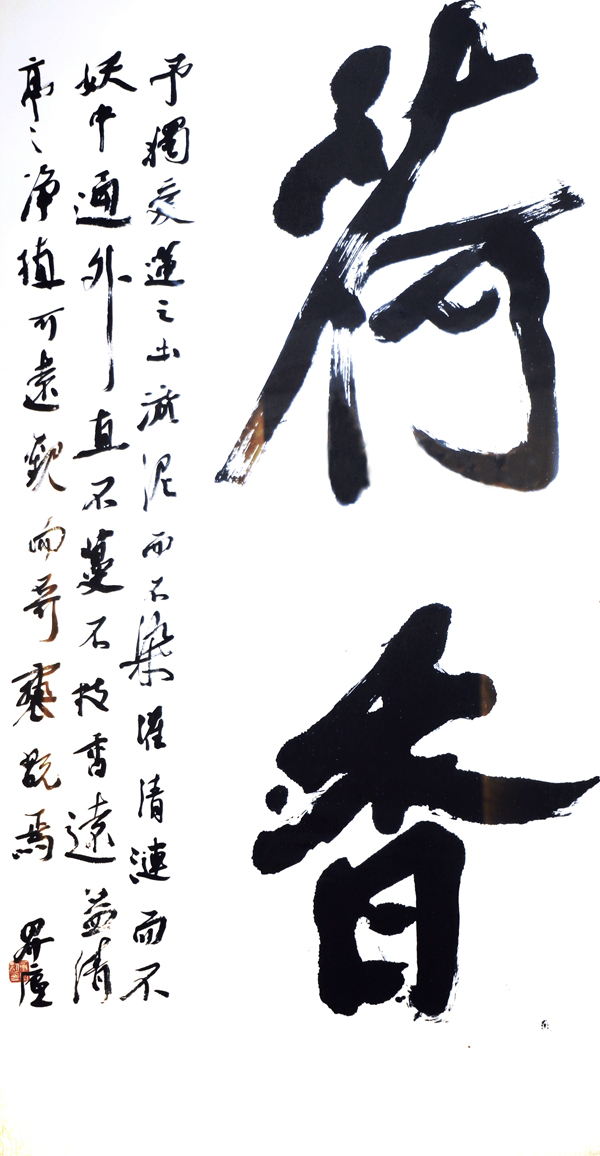 荷香
予獨愛蓮之出淤泥而不染濯清漣而不
妖中通外直不蔓不枝香遠益清
亭〻淨植可遠觀而不可褻翫焉